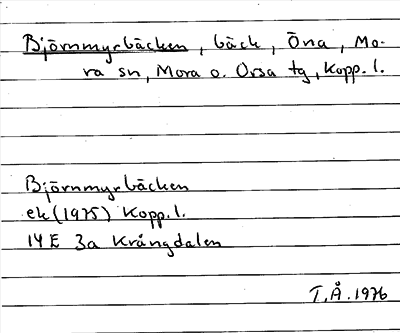 Björnmyrbäcken, bäck, Öna, Mo-
ra sn, Mora o. Orsa tg, Kopp. l.
Björnmyrbäcken
ek (1975) Kopp. l.
14 E 3a Krångdalen
T.Å. 1976